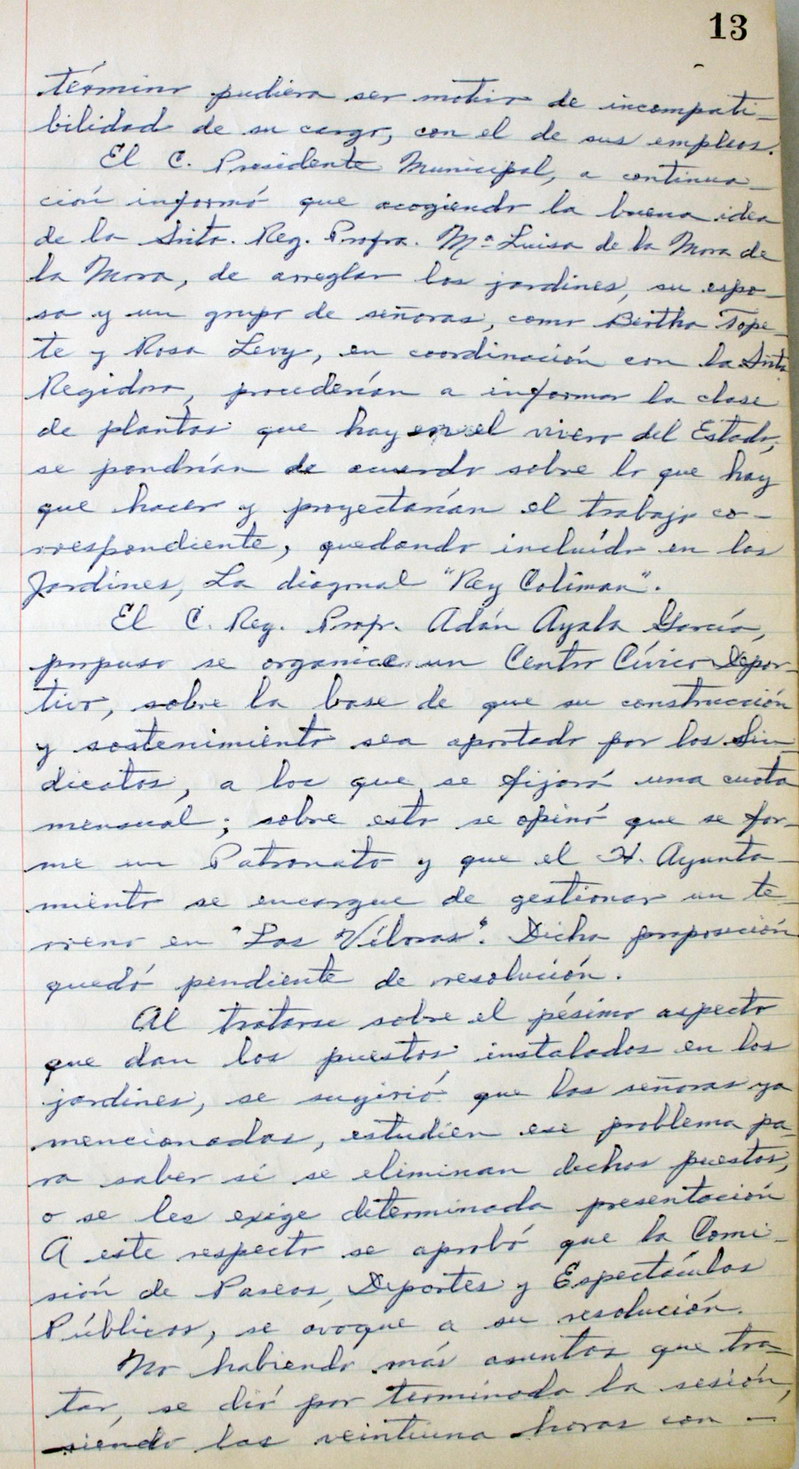 13
término pudiera ser motivo de incompati-
bilidad de su cargo, con el de sus empleos.
El C. Presidente Municipal, a continua-
ción informó que acogiendo la buena idea
de la Srita. Reg. Profra. Mª Luisa de la Mora de
la Mora, de arreglar los jardines, su espo-
sa y un grupo de señoras, como Bertha Tope-
te y Rosa Levy, en coordinación con la Srita
Regidora, procederían a informar la clase
de plantas que hay en el vivero del Estado,
se pondrían de acuerdo sobre lo que hay
que hacer y proyectarían el trabajo co-
rrespondiente, quedando incluído en los
Jardines, La diagonal "Rey Coliman".
El C. Reg. Profr. Adán Ayala García,
propuso se organice un Centro Cívico Depor-
tivo, sobre la base de que su construcción
y sostenimiento sea aportado por los Sin-
dicatos, a los que se fijará una cuota
mensual; sobre esto se opinó que se for-
me un Patronato y que el H. Ayunta-
miento se encargue de gestionar un te-
rreno en "Las Víboras". Dicha proposición
quedó pendiente de resolución.
Al tratarse sobre el pésimo aspecto
que dan los puestos instalados en los
jardines, se sugirió que las señoras ya
mencionadas, estudien ese problema pa-
ra saber si se eliminan dichos puestos,
o se les exige determinada presentación
A este respecto se aprobó que la Comi-
sión de Paseos, Deportes y Espectáculos
Públicos, se avoque a su resolución.
No habiendo más asuntos que tra-
tar, se dió por terminada la sesión,
siendo las veintiuna horas con -